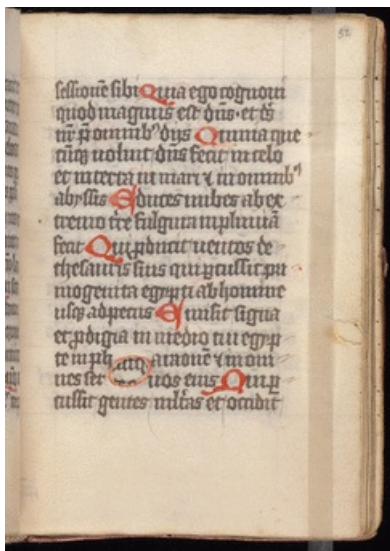 52
sessionē sibi Quia ego cognoui
quod magnus est dn̄s · et ds̄
nr̄ p̄ omnib⁹ dijs Omnia que
cūq̄ uoluit dn̄s fecit in celo
et in terra in mari ⁊ in omnib⁹
abyssis Educes nubes ab ex
tremo tr̄e fulgura in pluuiā
fecit Qui ꝓducit uentos de
thesauris suis qui ꝑcussit pri
mogenita egypti ab homine
usq̄ ad pecus Emisit signa
et ꝓdigia in medio tui egyp
te in ph araonē ⁊ in om
nes ser uos eius Qui ꝑ
cussit gentes ml̄tas et occidit